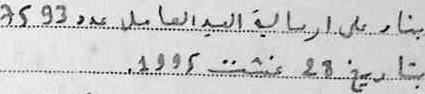 بناء على ارسالية السيد العامل عدد 7593
بتاريخ 28 غشت 1995.